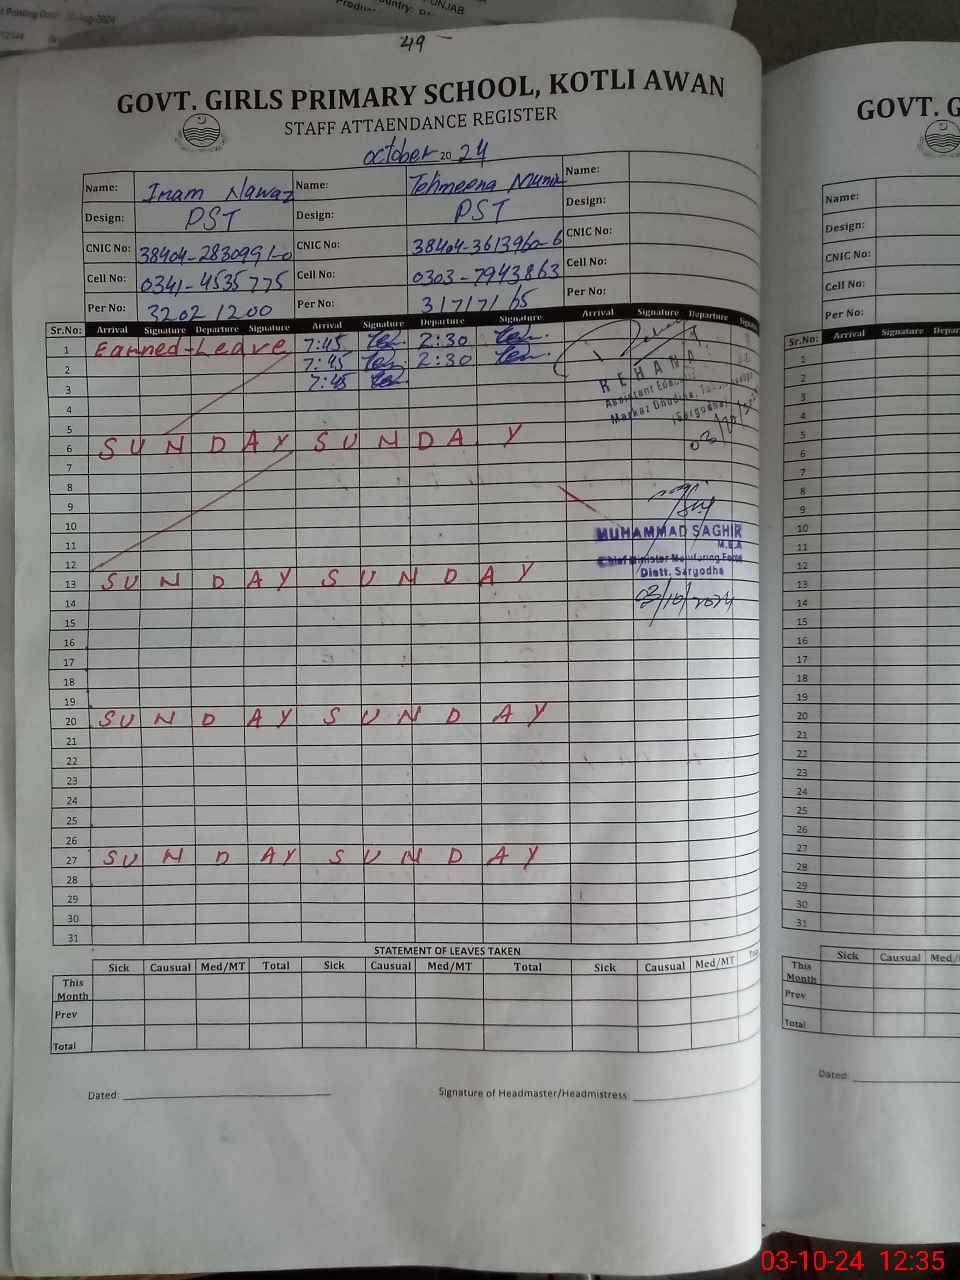 49
GOVT. GIRLS PRIMARY SCHOOL, KOTLI AWAN
STAFF ATTAENDANCE REGISTER
October 2024
Name: Inam Nawaz Name: Tehmeena Munir Name:
Design: PST Design: PST Design:
CNIC No: 38404-2830991-0 CNIC No: 38404-361396-6 CNIC No:
Cell No: 0341-4535775 Cell No: 0303-7943863 Cell No:
Per No: 32021200 Per No: 31717165 Per No:
Sr.No: Arrival Signature Departure Signature Arrival Signature Departure Signature Arrival Signature Departure
1 Earned-Leave 7:45 2:30
2 7:45 2:30
3 7:45
REHANA
4
5
6 SUNDAY SUNDAY
7
8
9
10
MUHAMMAD SAGHIR
M.E.A
11
Chief Minister Monitoring Force
12
Distt. Sargodha
13 SUNDAY SUNDAY
03/10/2024
14
15
16
17
18
19
20 SUNDAY SUNDAY
21
22
23
24
25
26
27 SUNDAY SUNDAY
28
29
30
31
STATEMENT OF LEAVES TAKEN
Sick Causual Med/MT Total Sick Causual Med/MT Total Sick Causual Med/MT
This Month
Prev
Total
Dated: Signature of Headmaster/Headmistress
GOVT. G
Name:
Design:
CNIC No:
Cell No:
Per No:
Sr.No: Arrival Signature
1
2
3
4
5
6
7
8
9
10
11
12
13
14
15
16
17
18
19
20
21
22
23
24
25
26
27
28
29
30
31
Sick Causual
This Month
Prev
Total
Dated:
03-10-24 12:35